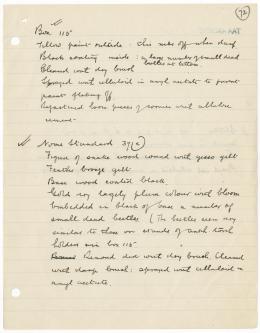 72
Box 115
Yellow paint outside: this rubs off when dry
Black coating inside: a large number of small dead
beetles at bottom
Cleaned with dry brush
Sprayed with celluloid in amyl acetate to prevent
paint flaking off
Refastened loose pieces of screws with celluloid
cement
Nome Standard 37(a)
Figure of snake wood covered with gesso gilt
Feather bronze gilt
Base wood coated black
Gold very largely plum colour with bloom
Embedded in black of base a number of
small dead beetles (The beetles seem very
similar to those on stands of torch
holders in box 115
Removed dust with dry brush, cleaned
with damp brush: sprayed with celluloid in
amyl acetate.